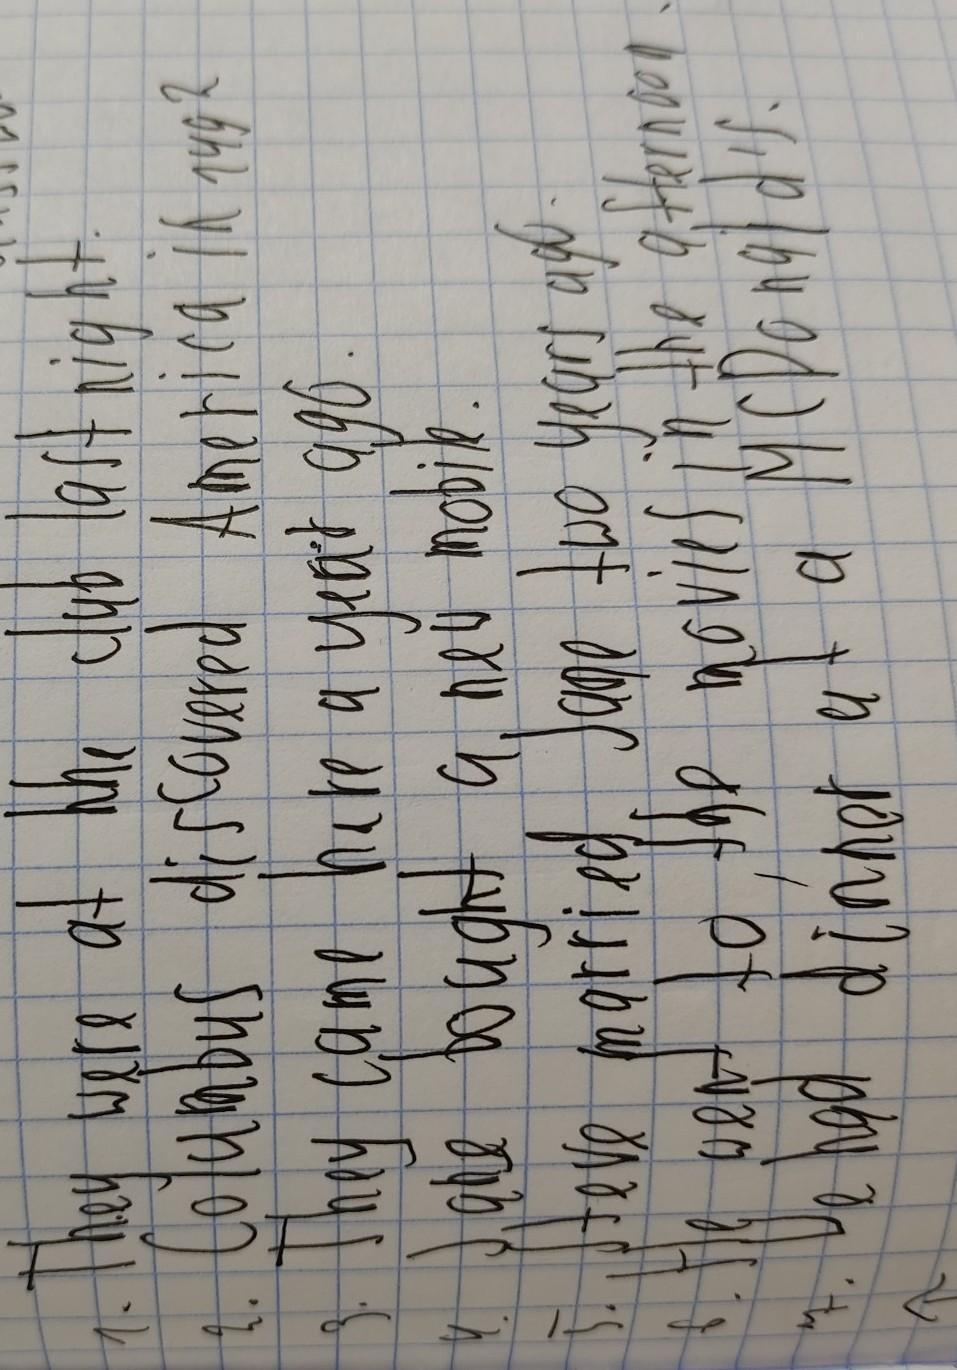 1. They were at the club last night.
2. Columbus discovered America in 1492
3. They came hure a year ago.
4. Jane bought a new mobile.
5. Steve married Jane two years ago.
6. He went to the movies in the afternoon.
7. We had dinner at a McDonalds.